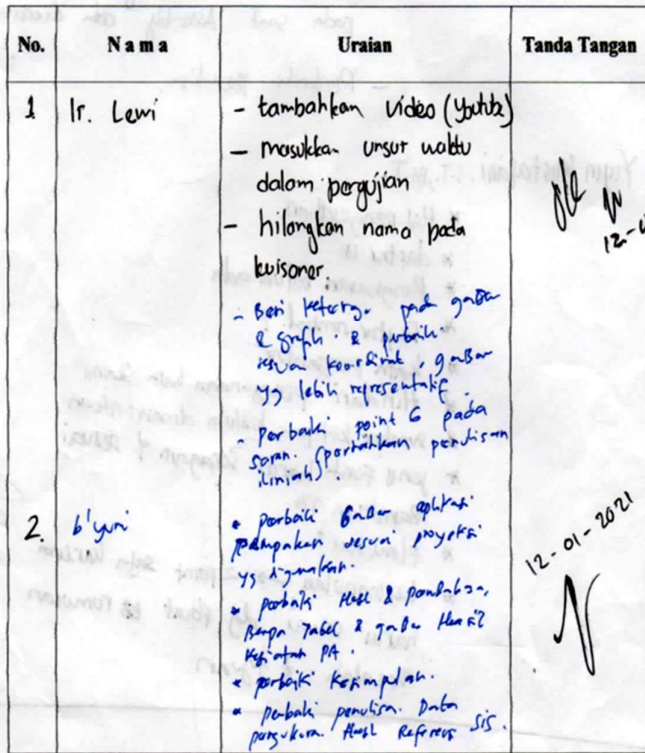 No. Nama Uraian Tanda Tangan
1 Ir. Lewi - tambahkan video (Youtube)
- masukkan unsur waktu
dalam pengujian
- hilangkan nama pada
kuisoner.
- Beri keterang. pada gambar
& grafik. & perbaiki
sesuai koordinat, gambar
yg lebih representatif.
- Perbaiki point 6 pada
saran. (perhatikan penulisan
ilmiah).
2. b'yuni * perbaiki Gambar aplikasi
sesuai proyeksi
yg digunakan.
* perbaiki Hasil & pembahasa,
Berupa Tabel & gambar Hasil
kegiatan PA.
* perbaiki kesimpulan.
* perbaiki penulisa. Data
pengukura. Hasil Referensi sis.
12-01-2021